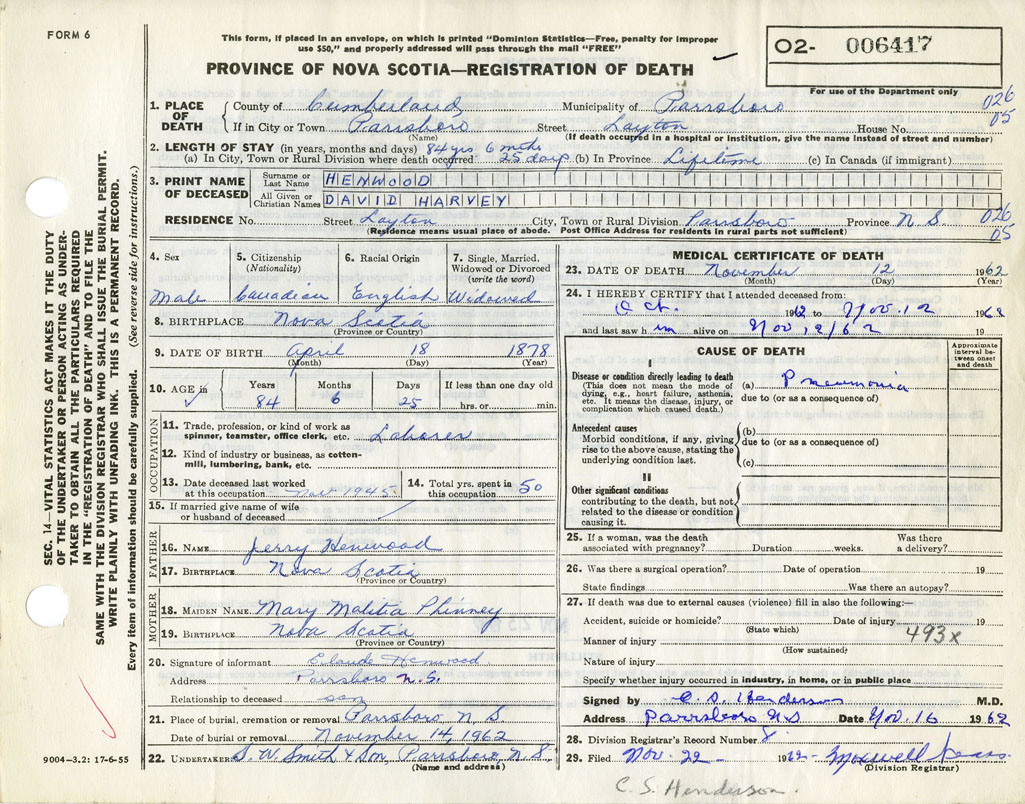 FORM 6
This form, if placed in an envelope, on which is printed "Dominion Statistics—Free, penalty for improper
use $50," and properly addressed will pass through the mail "FREE"
PROVINCE OF NOVA SCOTIA—REGISTRATION OF DEATH
02- 006417
For use of the Department only
026
05
1. PLACE OF DEATH
County of Cumberland Municipality of Parrsboro
If in City or Town Parrsboro Street Layton House No.
(Name) (If death occurred in a hospital or institution, give the name instead of street and number)
2. LENGTH OF STAY (in years, months and days) 84 yrs 6 mths
(a) In City, Town or Rural Division where death occurred 25 days (b) In Province Lifetime (c) In Canada (if immigrant)
3. PRINT NAME OF DECEASED
Surname or Last Name HENWOOD
All Given or Christian Names DAVID HARVEY
RESIDENCE No. Street Layton City, Town or Rural Division Parrsboro Province N.S.
026
05
(Residence means usual place of abode. Post Office Address for residents in rural parts not sufficient)
4. Sex
Male
5. Citizenship (Nationality)
Canadian
6. Racial Origin
English
7. Single, Married, Widowed or Divorced (write the word)
Widowed
8. BIRTHPLACE Nova Scotia
(Province or Country)
9. DATE OF BIRTH April 18 1878
(Month) (Day) (Year)
10. AGE in Years Months Days If less than one day old
84 6 25 hrs. or min.
OCCUPATION
11. Trade, profession, or kind of work as
spinner, teamster, office clerk, etc. Laborer
12. Kind of industry or business, as cotton-
mill, lumbering, bank, etc.
13. Date deceased last worked
at this occupation 1945
14. Total yrs. spent in
this occupation 50
15. If married give name of wife
or husband of deceased
FATHER
16. NAME Jerry Henwood
17. BIRTHPLACE Nova Scotia
(Province or Country)
MOTHER
18. MAIDEN NAME Mary Malita Phinney
19. BIRTHPLACE Nova Scotia
(Province or Country)
20. Signature of informant Claude Henwood
Address Parrsboro N.S.
Relationship to deceased son
21. Place of burial, cremation or removal Parrsboro, N.S.
Date of burial or removal November 14, 1962
22. UNDERTAKER S. W. Smith & Son, Parrsboro, N.S.
(Name and address)
MEDICAL CERTIFICATE OF DEATH
23. DATE OF DEATH November 12 1962
(Month) (Day) (Year)
24. I HEREBY CERTIFY that I attended deceased from:
Oct. 1962 to Nov. 12 1962
and last saw him alive on Nov 12/62 19
CAUSE OF DEATH
Approximate interval between onset and death
I
Disease or condition directly leading to death
(This does not mean the mode of
dying, e.g., heart failure, asthenia,
etc. It means the disease, injury, or
complication which caused death.)
(a) Pneumonia
due to (or as a consequence of)
Antecedent causes
Morbid conditions, if any, giving
rise to the above cause, stating the
underlying condition last.
(b)
due to (or as a consequence of)
(c)
II
Other significant conditions
contributing to the death, but not
related to the disease or condition
causing it.
25. If a woman, was the death Was there
associated with pregnancy? Duration weeks. a delivery?
26. Was there a surgical operation? Date of operation 19
State findings Was there an autopsy?
27. If death was due to external causes (violence) fill in also the following:—
Accident, suicide or homicide? Date of injury 19
(State which)
493x
Manner of injury
(How sustained)
Nature of injury
Specify whether injury occurred in industry, in home, or in public place
Signed by C. S. Henderson M.D.
Address Parrsboro N.S Date Nov. 16 1962
28. Division Registrar's Record Number 8
29. Filed Nov. 22 1962 Maxwell
(Division Registrar)
C. S. Henderson.
SEC. 14—VITAL STATISTICS ACT MAKES IT THE DUTY
OF THE UNDERTAKER OR PERSON ACTING AS UNDER-
TAKER TO OBTAIN ALL THE PARTICULARS REQUIRED
IN THE "REGISTRATION OF DEATH" AND TO FILE THE
SAME WITH THE DIVISION REGISTRAR WHO SHALL ISSUE THE BURIAL PERMIT.
WRITE PLAINLY WITH UNFADING INK. THIS IS A PERMANENT RECORD.
Every item of information should be carefully supplied. (See reverse side for instructions.)
9004-3.2: 17-6-55